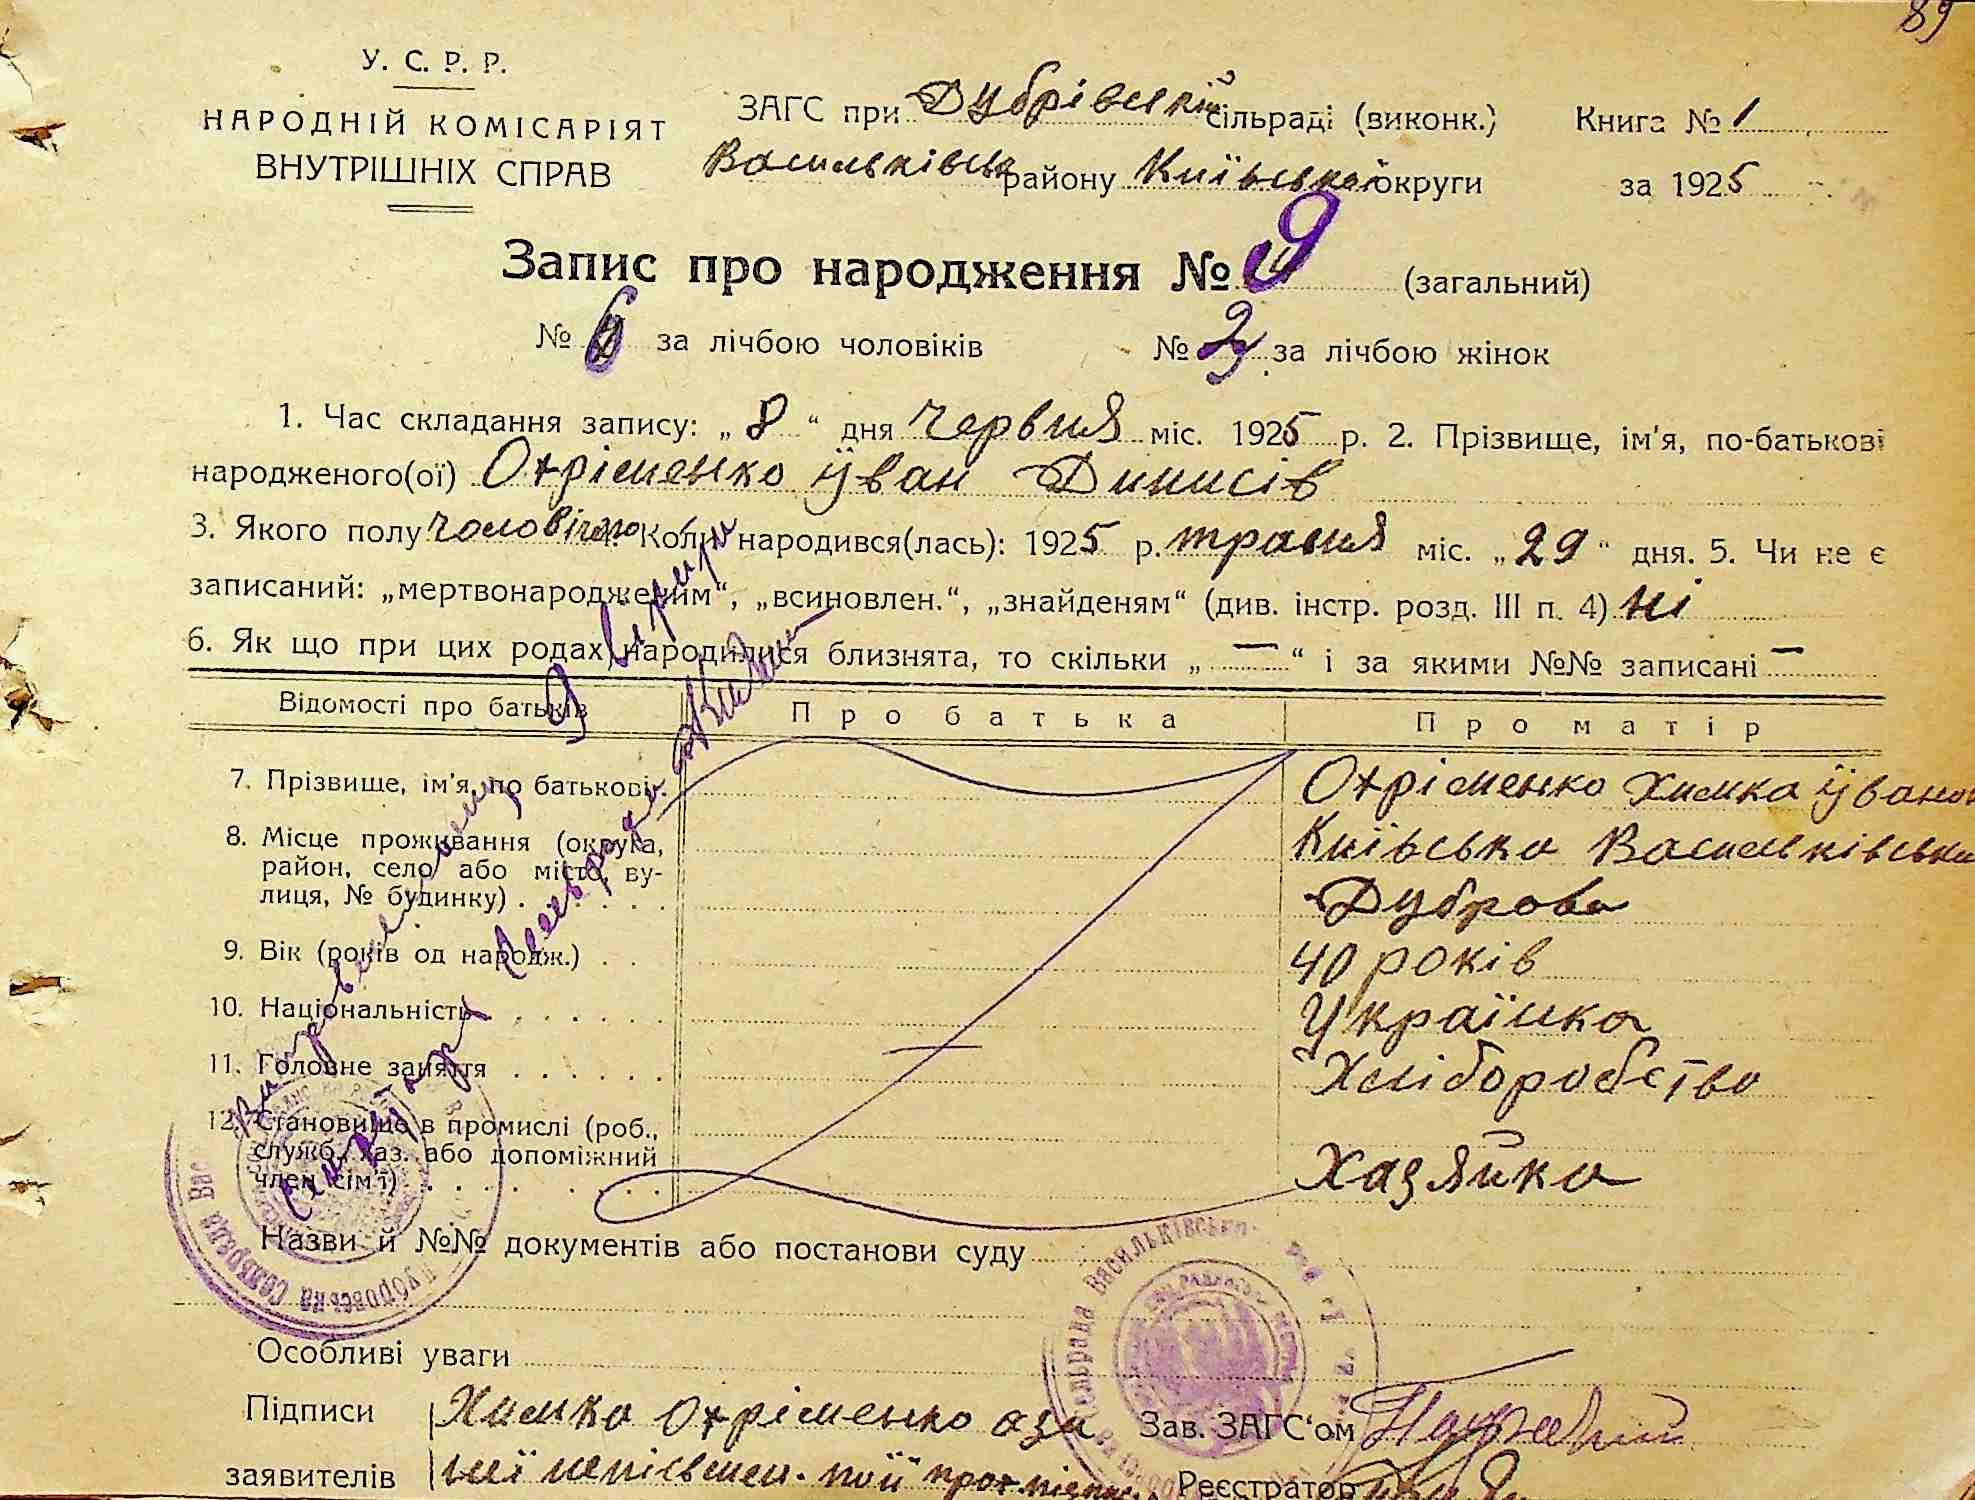 89
У. С. Р. Р.
НАРОДНІЙ КОМІСАРІЯТ
ВНУТРІШНІХ СПРАВ
ЗАГС при Дубрівській сільраді (виконк.) Книга № 1
Васильківськ району Київської округи за 1925
Запис про народження № 9 (загальний)
№ 6 за лічбою чоловіків № 3 за лічбою жінок
1. Час складання запису: „ 8 “ дня червня міс. 1925 р. 2. Прізвище, ім'я, по-батькові
народженого(ої) Охріменко Йван Динисів
3. Якого полу чоловічого Коли народився(лась): 1925 р. травня міс. „ 29 “ дня. 5. Чи не є
записаний: „мертвонародженим“, „всиновлен.“, „знайденям“ (див. інстр. розд. III п. 4) ні
6. Як що при цих родах народилися близнята, то скільки „ — “ і за якими №№ записані —
Відомості про батьків Про батька Про матір
7. Прізвище, ім'я, по батькові. Охріменко Химка Йванов
8. Місце проживання (округа, Київська Васильківська
район, село або місто, ву-
лиця, № будинку) Дуброва
9. Вік (років од народж.) 40 років
10. Національність Українка
11. Головне заняття Хліборобство
12. Становище в промислі (роб.,
служб., хаз. або допоміжний Хазяйка
член сім'ї)
Назви й №№ документів або постанови суду
Особливі уваги
Підписи Химка Охріменко аза Зав. ЗАГС'ом
заявителів неї неписьмен. Реєстратор